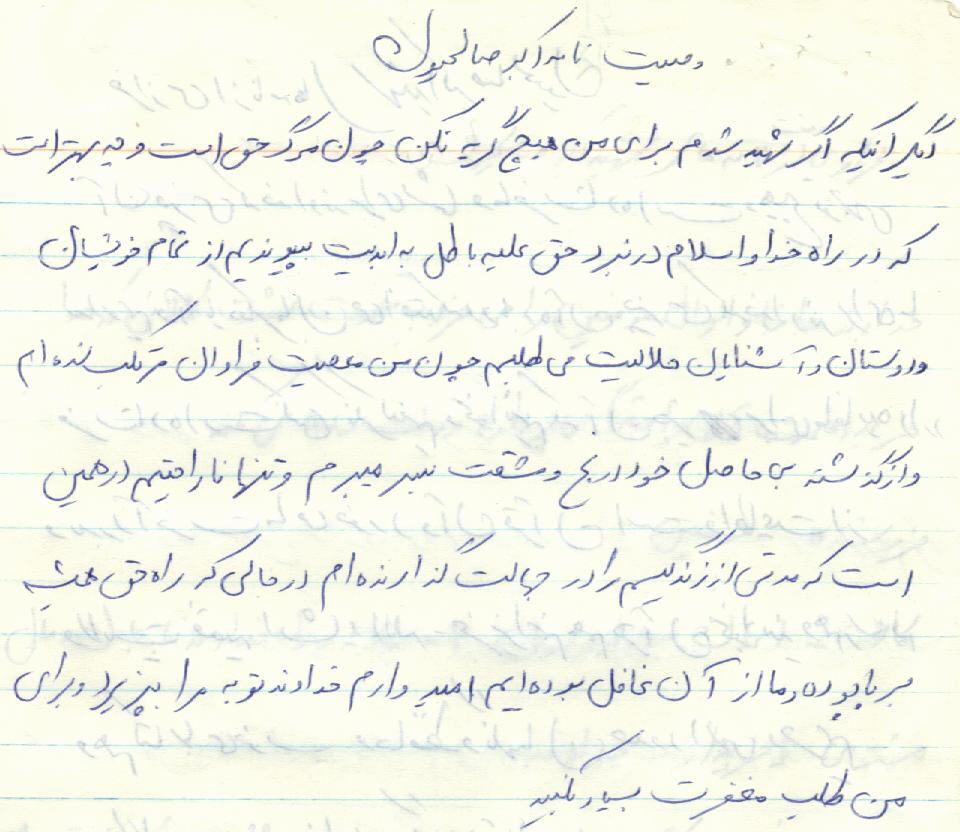 وصیت نامه اکبر صالحپور
دیگر اینکه اگر شهید شدم برای من هیچ گریه نکن چون مرگ حق است و چه بهتر است
که در راه خدا و اسلام در نبرد حق علیه باطل به ابدیت بپیوندیم از تمام
و دوستان و آشنایان حلالیت می طلبم چون من معصیت فراوان مرتکب شده ام
و از گذشته بی حاصل خود در رنج و مشقت بسر میبرم و تنها ناراحتیم در همین
است که مدتی از زندگیم را در جهالت گذارنده ام در حالی که راه حق همیشه
بر پا بوده و ما از آن غافل بوده ایم امید وارم خداوند توبه مرا بپزیرد و برای
من طلب مغفرت بسیار بکنید